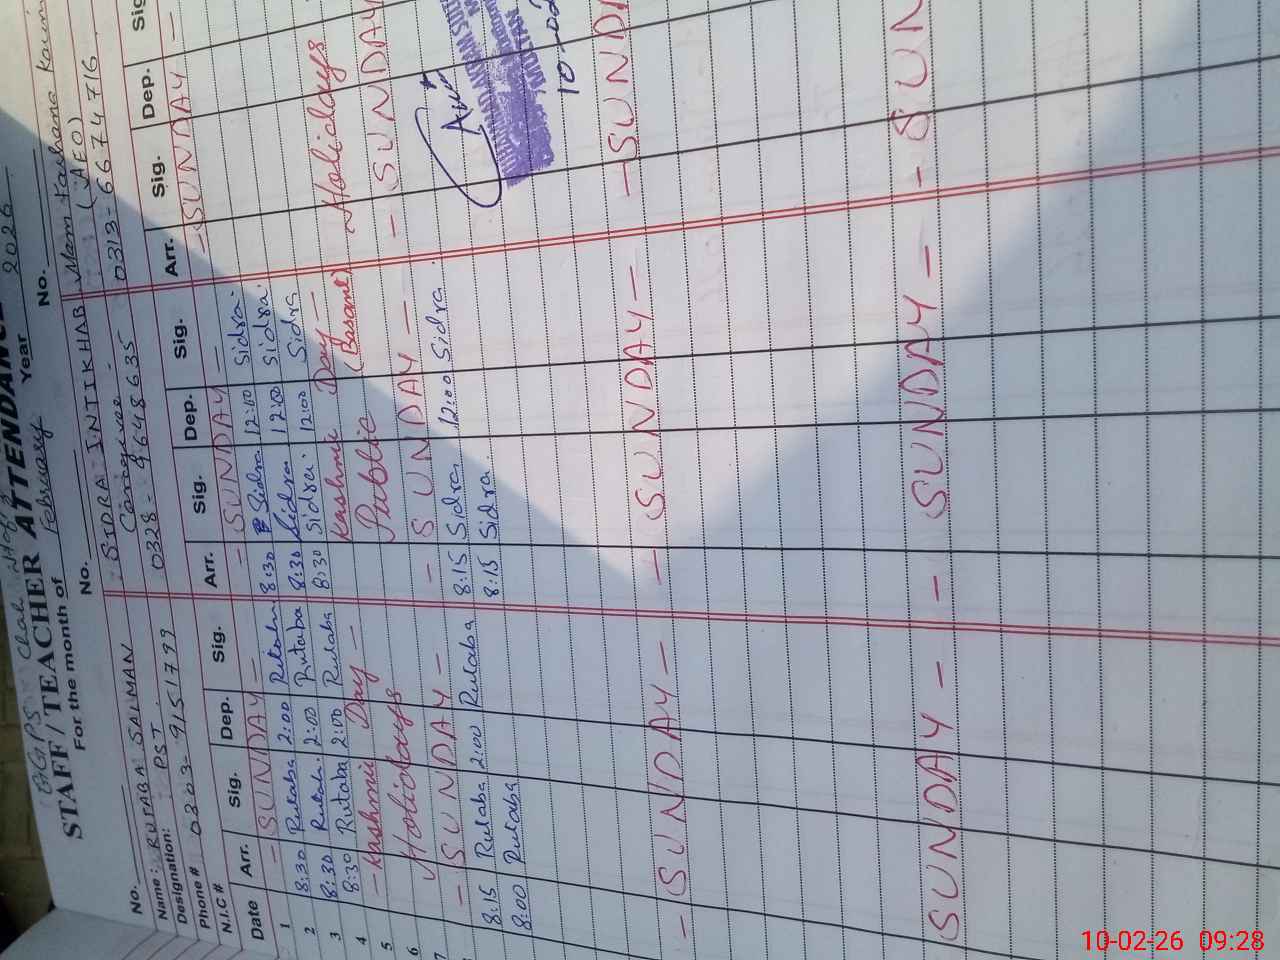 GGPS Chak
STAFF/TEACHER ATTENDANCE
For the month of February Year 2026
No. No. No.
Name: RUTABA SALMAN SIDRA INTIKHAB Mem Farhana
Designation: PST Caregiver (AEO)
Phone # 0303-9151799 0328-9648635 0313-6674716
N.I.C #
Date Arr. Sig. Dep. Sig. Arr. Sig. Dep. Sig. Arr. Sig. Dep. Sig
1 - SUNDAY - - SUNDAY - - SUNDAY -
2 8:30 Rutaba 2:00 Rutaba 8:30 Sidra 12:10 Sidra.
3 8:30 Rutaba 2:00 Rutaba 8:30 Sidra 12:00 Sidra.
4 8:30 Rutaba 2:00 Rutaba 8:30 Sidra. 12:00 Sidra
5 - Kashmir Day - Kashmir Day -
6 Holidays Public (Basant) Holidays
7
- SUNDAY - - SUNDAY - - SUNDAY
8:15 Rutaba 2:00 Rutaba 8:15 Sidra 12:00 Sidra.
8:00 Rutaba 8:15 Sidra.
- SUNDAY - - SUNDAY - - SUNDA
SUNDAY - - SUNDAY - - SUN
10-02-26 09:28